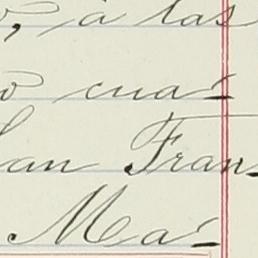 o, á las
o cua-
San Fran-
Ma-